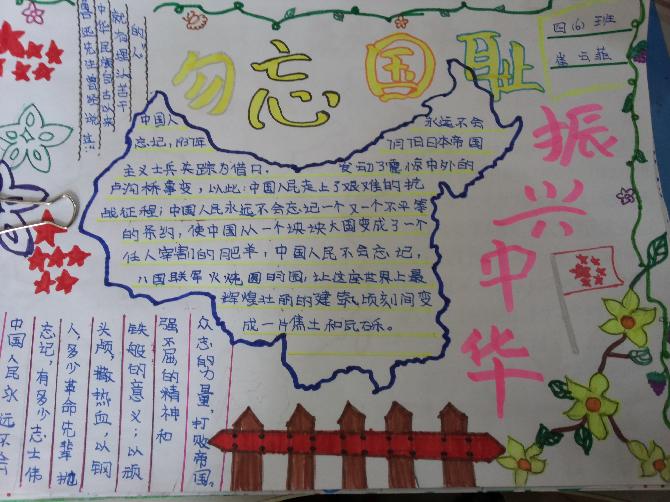 勿忘国耻
四(6)班
崔云菲
振兴中华
鲁迅先生曾经说过:
中华民族自古以来
就有埋头苦干
的人
中国人 永远不会
忘记,1937年 7月7日日本帝国
主义士兵失踪为借口, 发动了震惊中外的
卢沟桥事变,以此:中国人民走上了艰难的抗
战征程;中国人民永远不会忘记一个又一个不平等
的条约,使中国从一个泱泱大国变成了一个
任人宰割的肥羊,中国人民不会忘记,
八国联军火烧圆明园,让这座世界上最
辉煌壮丽的建筑顷刻间变
成一片焦土和瓦砾。
众志的力量,打败帝国。
强不屈的精神和
铁般的意义;以顽
头颅,撒热血,以钢
人,多少革命先辈抛
忘记,有多少志士伟
中国人民永远不会